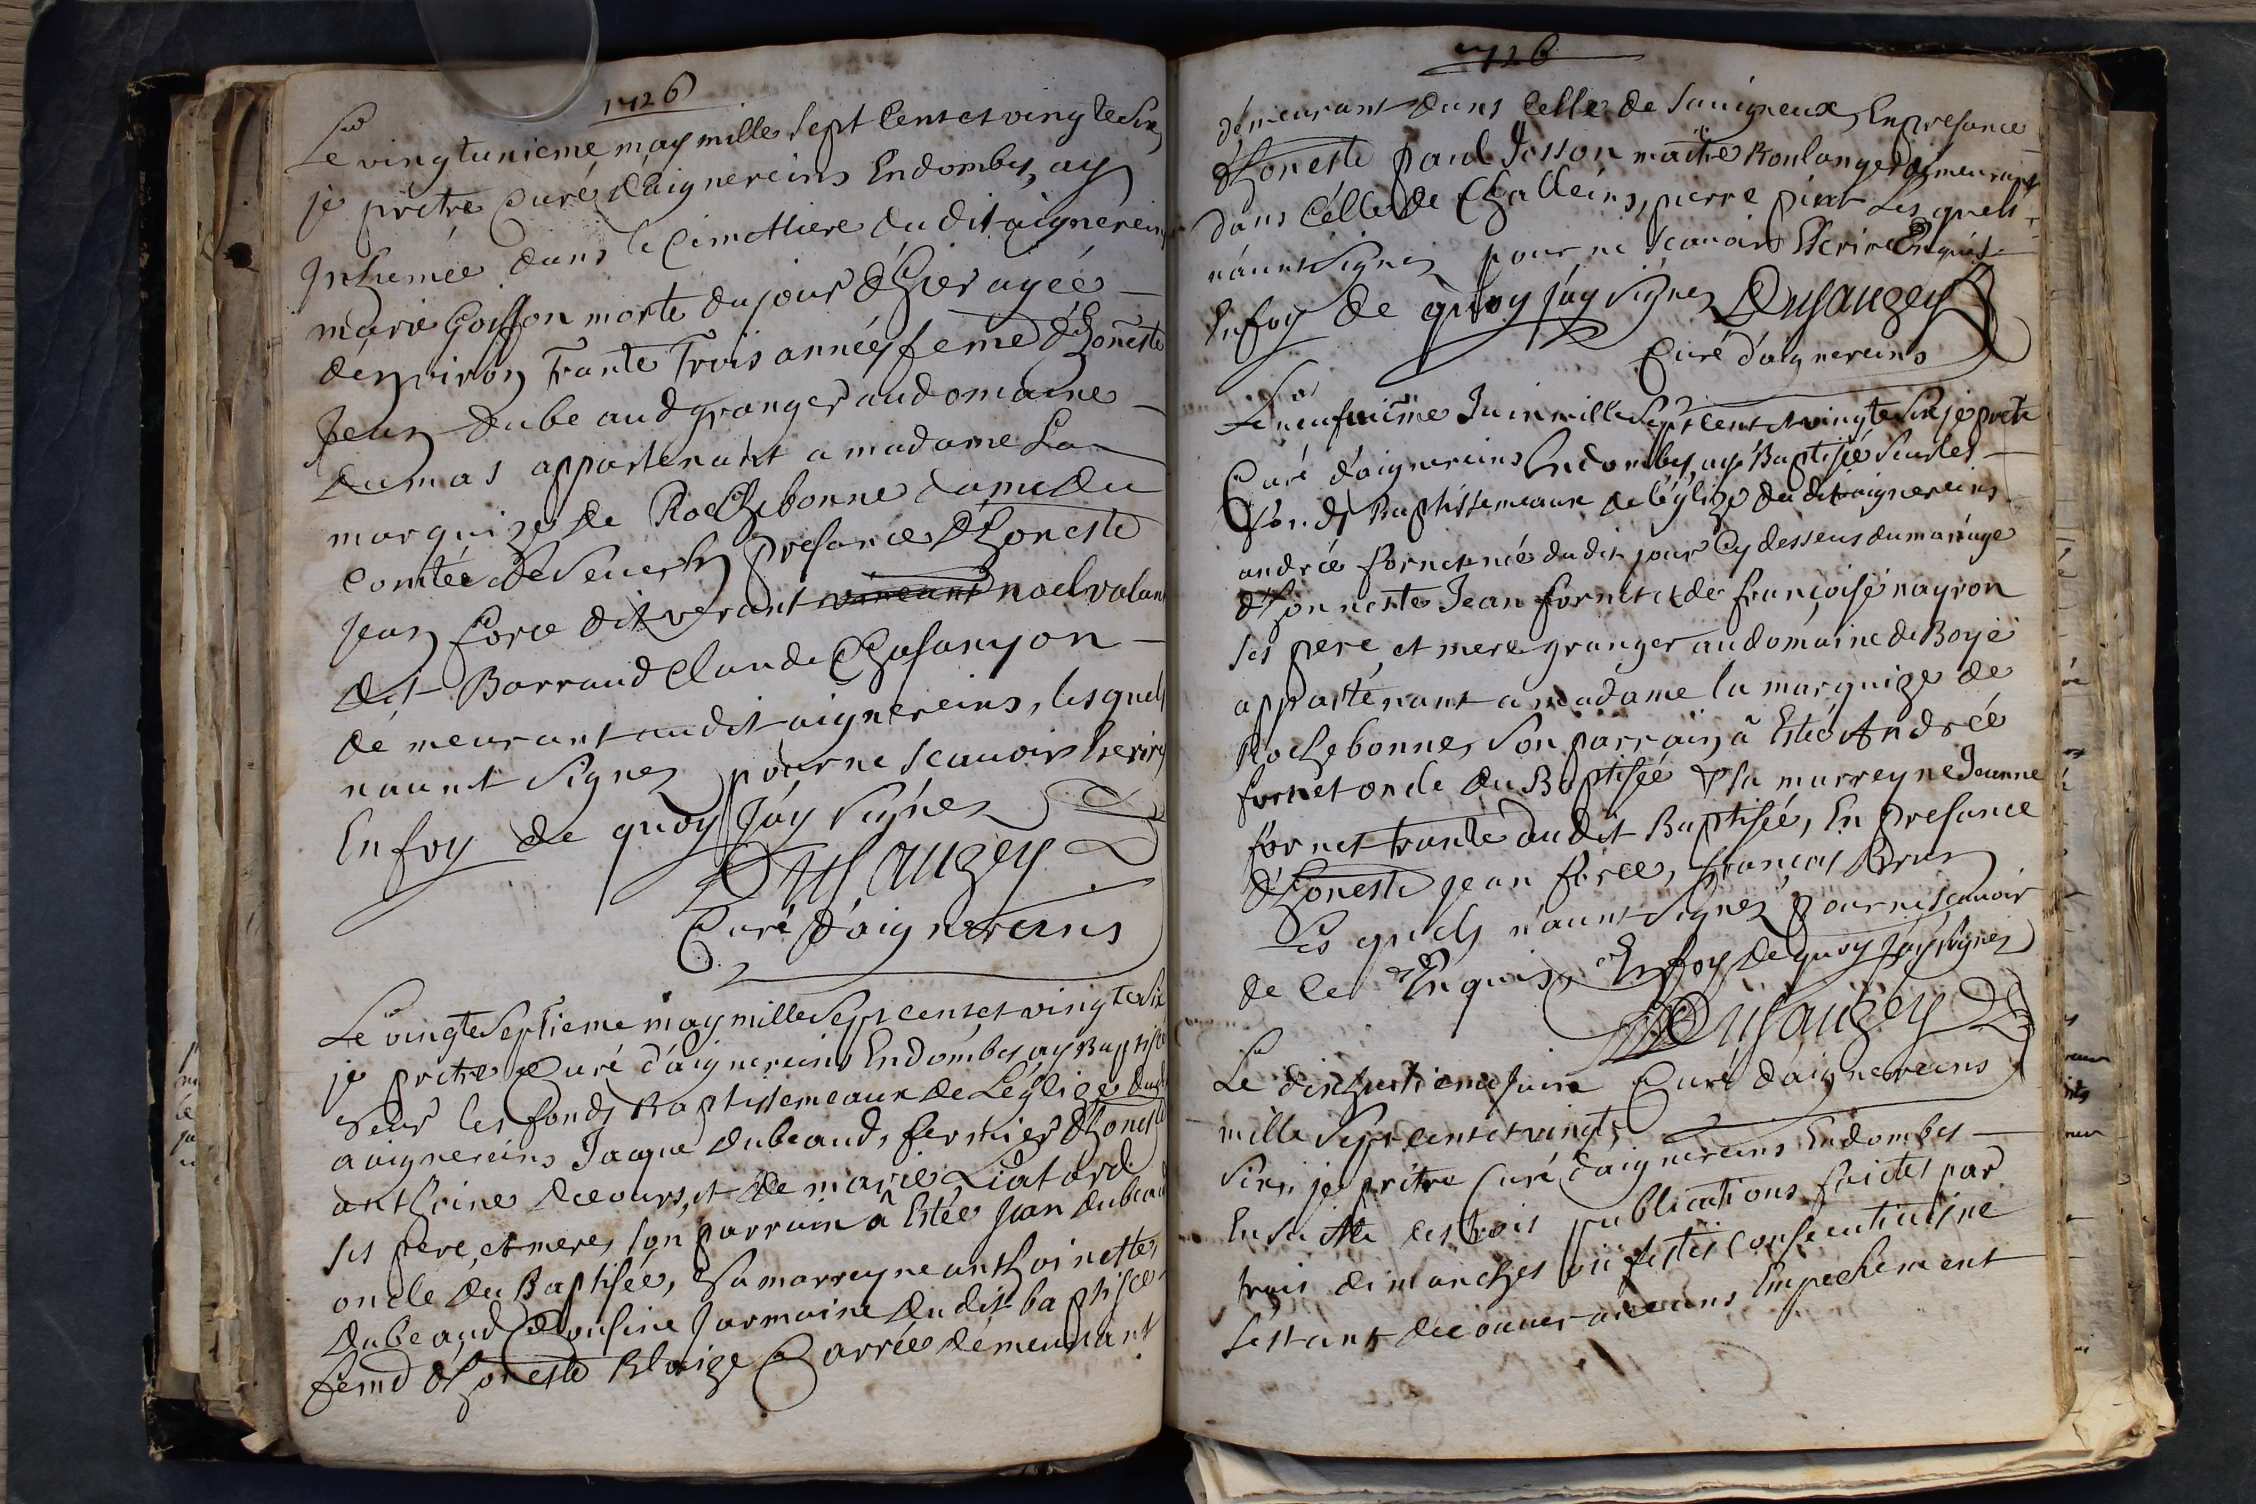 1726
Le vingtunieme may mille sept cent et vingte six
je pretre Curé d'aignereins Endombes, ay
Inhumée dans le Cimettiere du dit aignereins
marie Goiffon morte du jour d'hier agée
d'environ Trante Trois années feme d'honeste
Jean Dubeaud granger au domaine
Dumas appartenant a madame La
marquize de Rochebonne dame du
comtée de presance d'honeste
Jean force dit verant noel volant
dit Barraud Claude Chasanyon
demeurant audit aignereins, lesquels
naunt Signes pour ne scauoir Escrire
En foy de quoy J'ay Signes
Dusauzey
Curé d'aignereins
Le vingte Septieme may mille Sept cent et vingte Six
je pretre Curé d'aignereins Endombes ay Baptisé
Seur les fonds Baptissemeaux de L'eglize dudit
aaignereins Jacque dubeaud, fermier d'honeste
anthoine et de marie Liatard
ses pere, et mere, son parrain â Estée Jean dubeaud
oncle du Baptisée, & sa marreyne anthoinette
Dubeaud Cousine Jarmaine du dit baptisee
feme d'honeste Blaize Carrée demeurant
1726
demeurant dans Celle de Sauigneux, En presance
d'honeste paul Josson maitre Boulanger demeurant
dans Célle de Challeins, pierre Les quels
naunt Signes pour ne scauoir Escrire Enquis
En foy de quoy J'ay Signes Dusauzey
Curé d'aignereins
Le neufuieme Juin mille Sept Cent et vingte Six je pretre
Curé d'aignereins Endombes, ay Baptisée Seur les
fonds Baptissemeaux de l'églize du dit aignereins
andrée fornet née du dit jour Cy dessus du mariage
d'honneste Jean fornet et de françoise nayron
ses pere, et mere granger au domaine de Boyé
appartenant a madame la marquize de
Rochebonne, son parrain â Estée Andrée
fornet oncle du Baptisée & sa marreyne Jeanne
fornet trante du dit Baptisée, En presance
d'honeste jean force, françois Brun
Les quels n'aunt Signes pour ne scauoir
de ce Enquis, En foy de quoy J'ay Signes
Dusauzey
Le dix Juin Curé d'aignereins
mille Sept cent et vingt
Six, je prêtre Curé d'aignereins Endombes
Ensuitte les trois publications faictes par
trois dimanches ou festes Consecutiues ne
s'estant decouuer aucuns Empechement